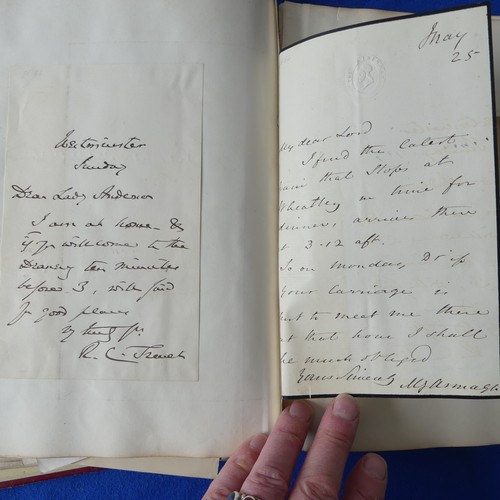 Westminster
Sunday
Dear Lady Anderson
I am at home - &
if you will come to the
Deanery ten minutes
before 3, will find
good places
R. C. Trench
May
25
My dear Lord
I find the Celestial
train that stops at
Wheatley in time for
dinner, arrives there
at 3.12 aft.
So on Monday, D.V. if
your carriage is
sent to meet me there
at that hour I shall
be much obliged
Yours Sincerely M G Armagh